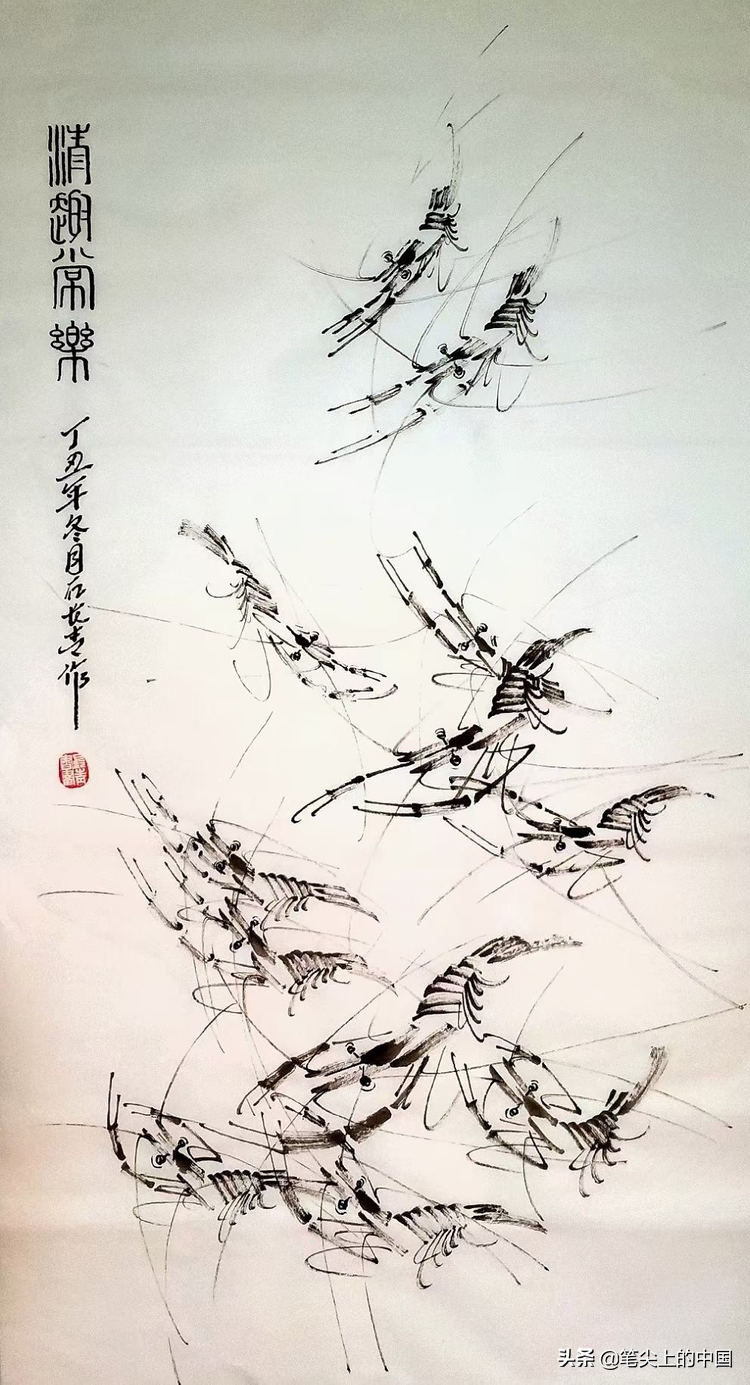 清趣常樂
丁丑年冬月石长青作
头条 @笔尖上的中国